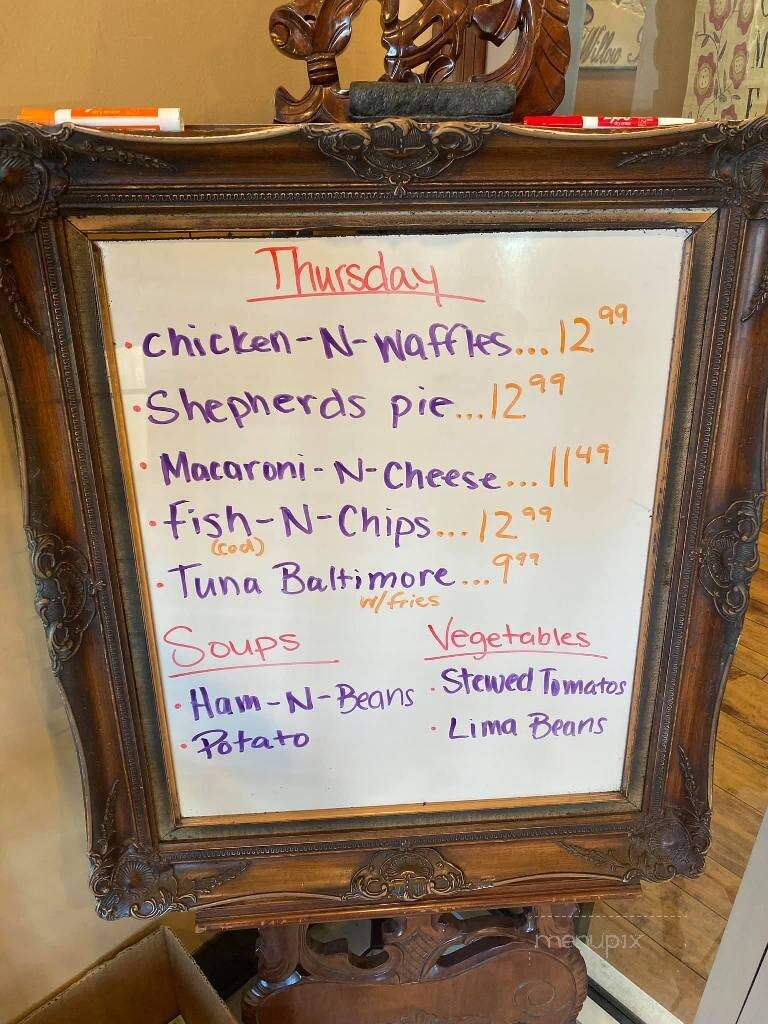 Willow
Thursday
• Chicken-N-Waffles...12.99
• Shepherds pie...12.99
• Macaroni-N-Cheese...11.49
• Fish-N-Chips...12.99
(cod)
• Tuna Baltimore...9.99
w/fries
Soups
• Ham-N-Beans
• Potato
Vegetables
• Stewed Tomatos
• Lima Beans
menupix